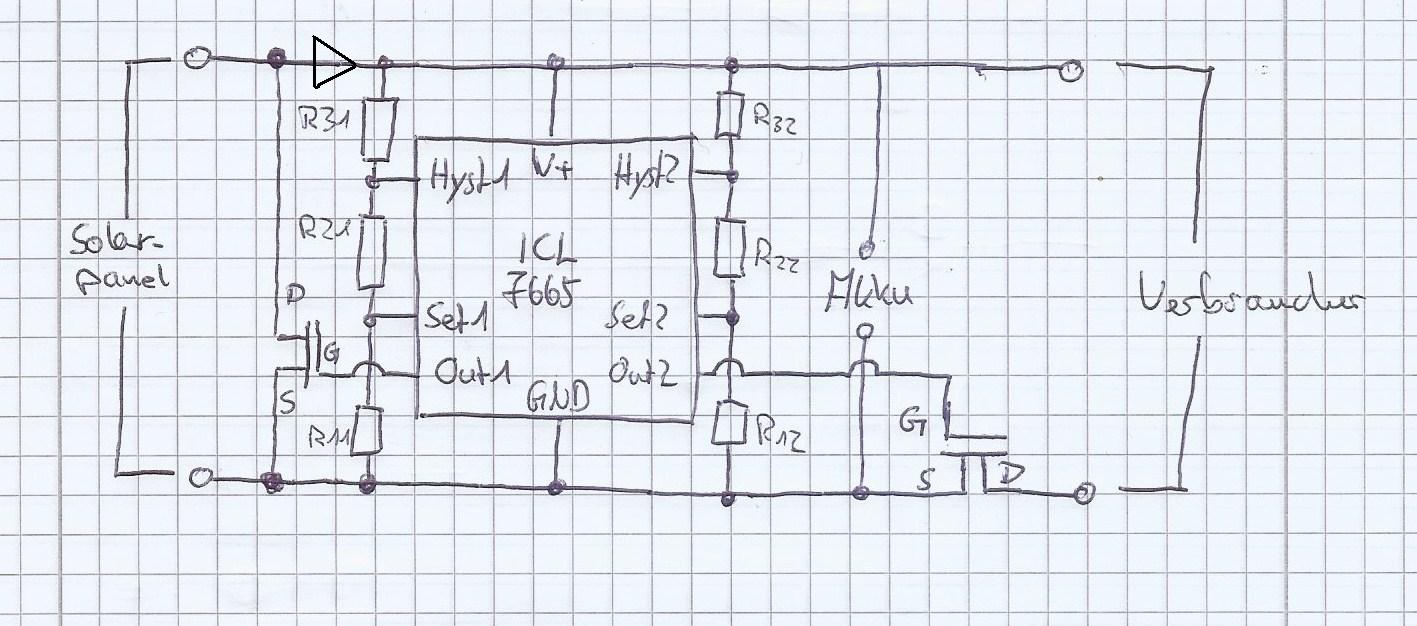 R31
R32
Hyst1
V+
Hyst2
R21
Solar-
panel
ICL
7665
R22
Akku
Verbraucher
D
Set1
Set2
G
Out1
Out2
S
GND
R11
R12
G
S
D